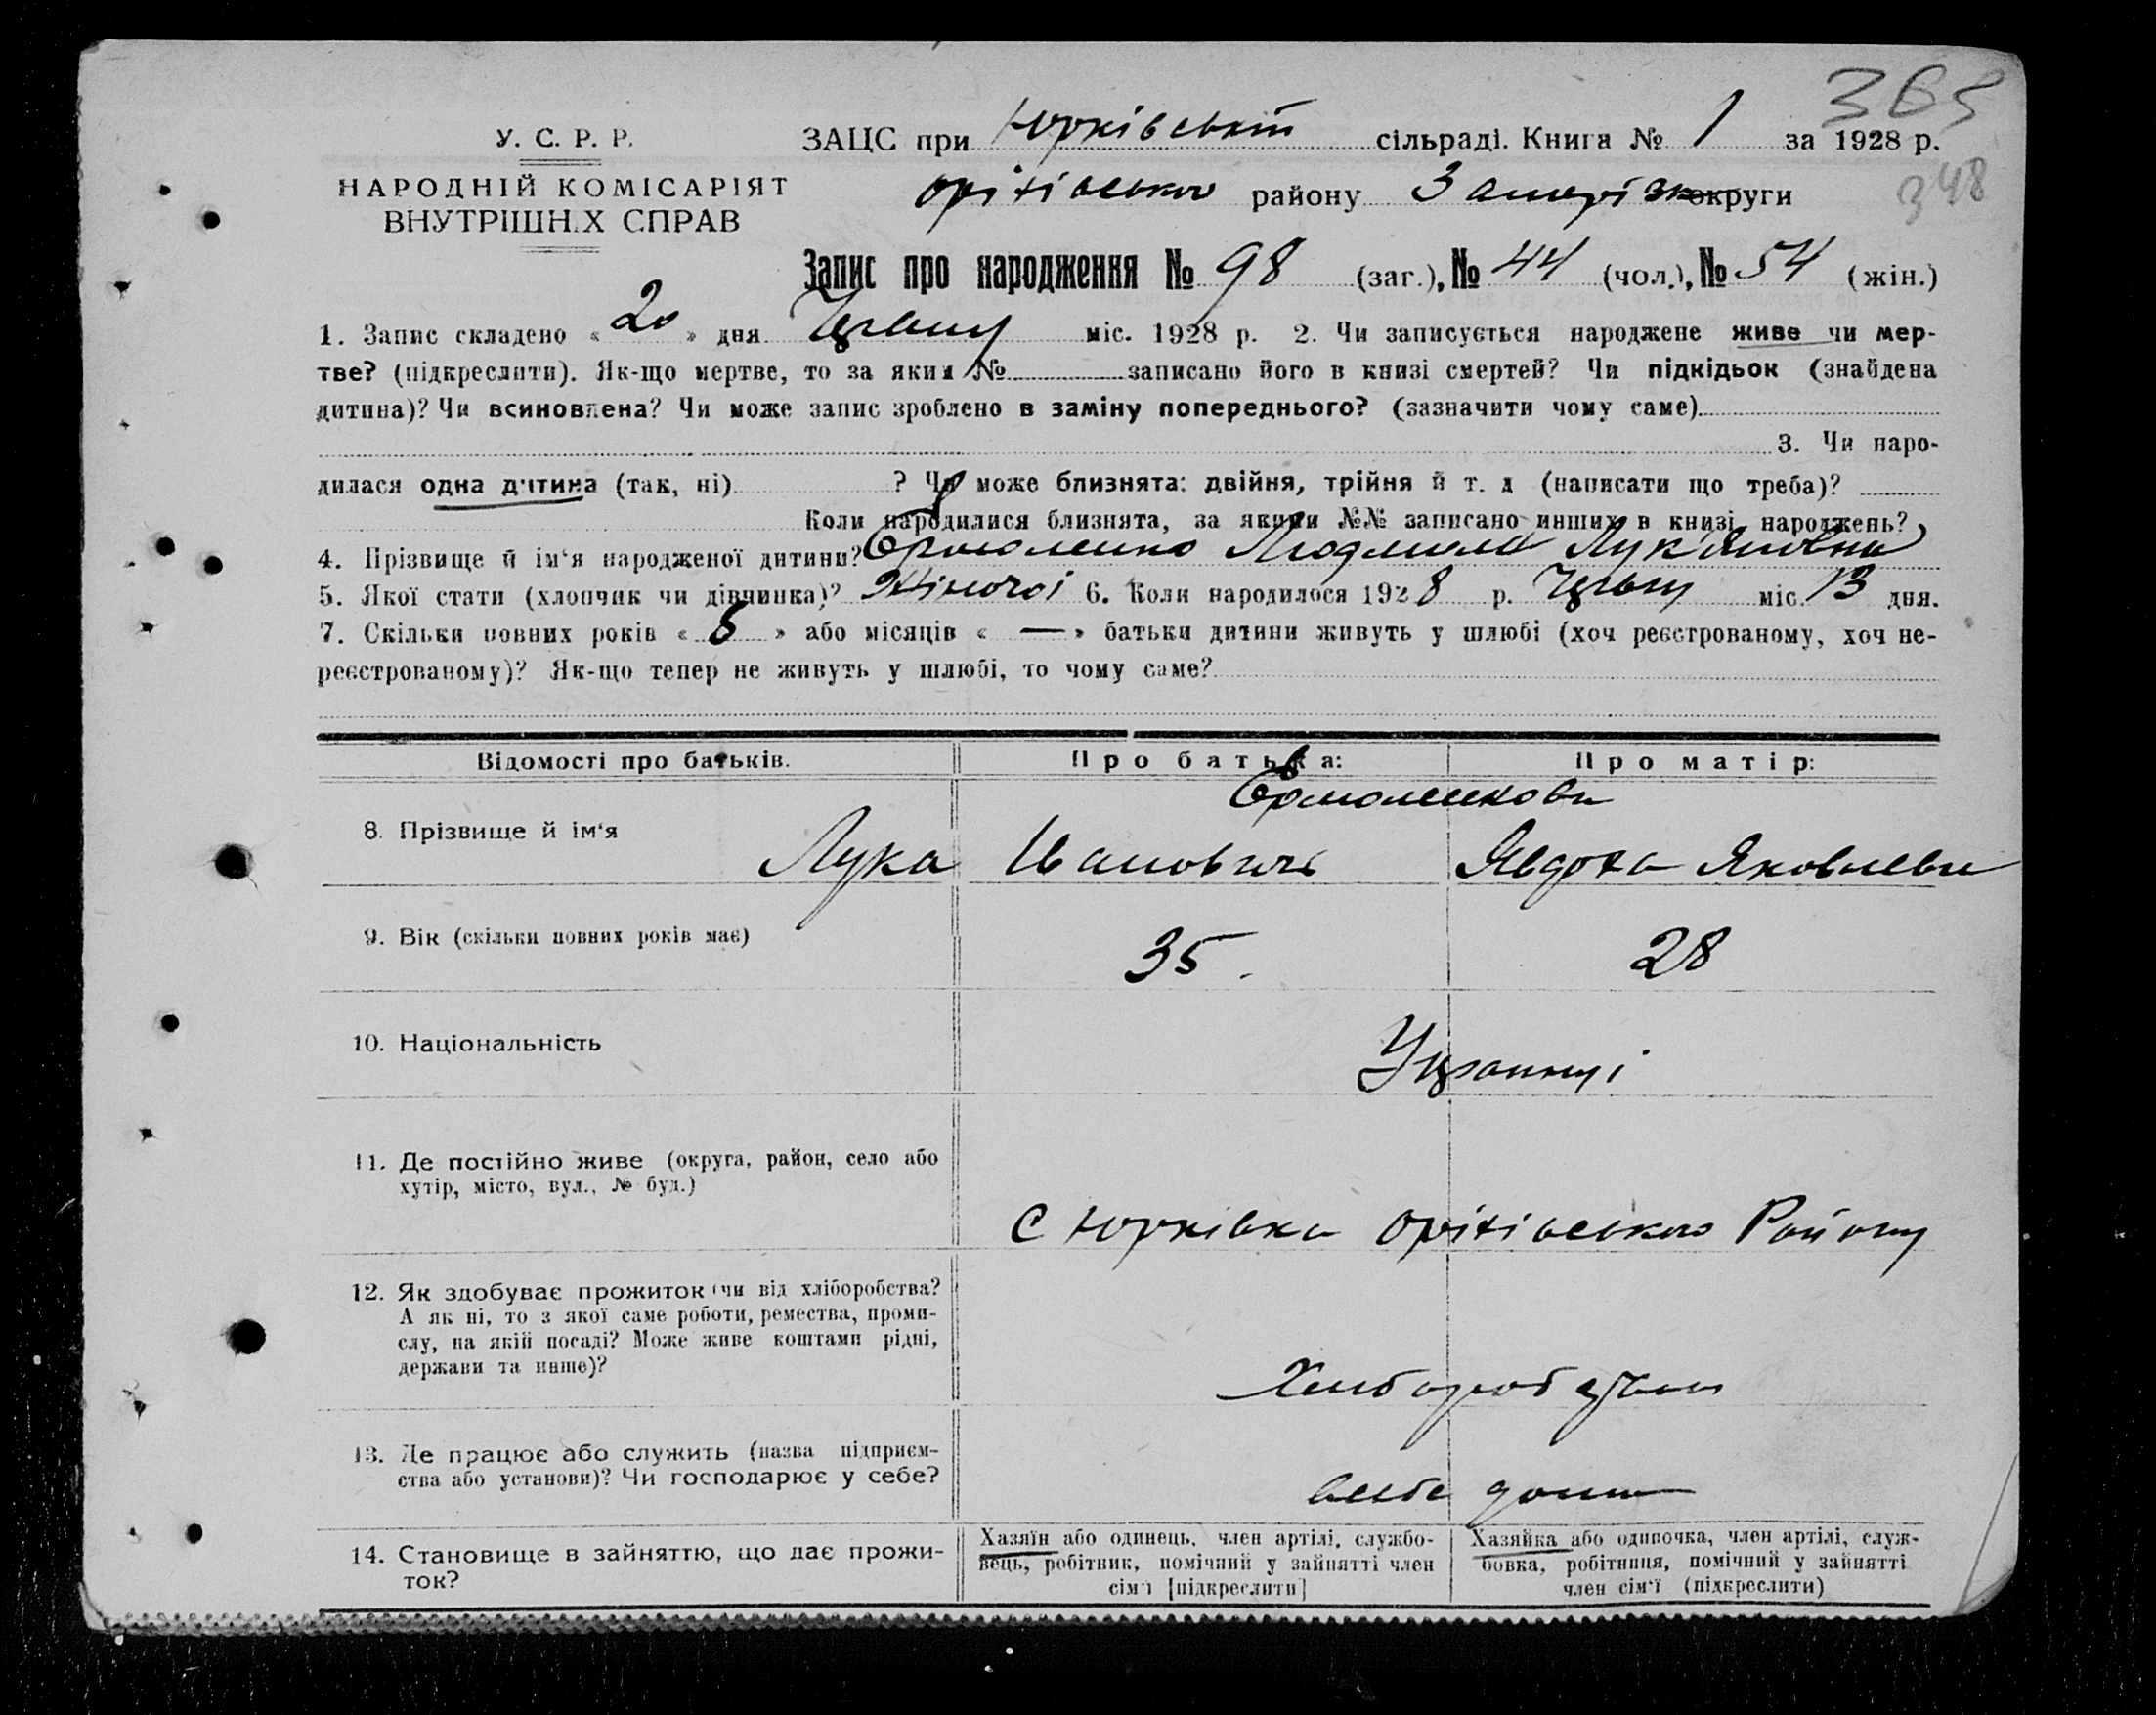 365
348
У. С. Р. Р.
НАРОДНІЙ КОМІСАРІЯТ
ВНУТРІШНІХ СПРАВ
ЗАЦС при Юрківській сільраді. Книга № 1 за 1928 р.
Оріхівського району Запоріжж округи
Запис про народження № 98 (заг.), № 44 (чол.), № 54 (жін.)
1. Запис складено « 20 » дня Червня міс. 1928 р. 2. Чи записується народжене живе чи мер-
тве? (підкреслити). Як-що мертве, то за яким № записано його в книзі смертей? Чи підкідьок (знайдена
дитина)? Чи всиновлена? Чи може запис зроблено в заміну попереднього? (зазначити чому саме)
3. Чи наро-
дилася одна дитина (так, ні) ? Чи може близнята: двійня, трійня й т. д (написати що треба)?
Коли народилися близнята, за якими №№ записано инших в книзі народжень?
4. Прізвище й ім‘я народженої дитини? Єрмоленко Людмила Лук'яновна
5. Якої стати (хлопчик чи дівчинка)? Жіночої 6. Коли народилося 1928 р. Червня міс. 13 дня.
7. Скільки повних років « 8 » або місяців « — » батьки дитини живуть у шлюбі (хоч реєстрованому, хоч не-
реєстрованому)? Як-що тепер не живуть у шлюбі, то чому саме?
Відомості про батьків. Про батька: Про матір:
Єрмоленкови
8. Прізвище й ім‘я Лука Іванович Явдоха Яковлевна
9. Вік (скільки повних років має) 35. 28
10. Національність Українці
11. Де постійно живе (округа, район, село або
хутір, місто, вул., № буд.)
С Юрківка Оріхівського Району
12. Як здобуває прожиток (чи від хліборобства?
А як ні, то з якої саме роботи, ремества, проми-
слу, на якій посаді? Може живе коштами рідні,
держави та инше)?
13. Де працює або служить (назва підприєм-
ства або установи)? Чи господарює у себе?
всебе дома
14. Становище в зайняттю, що дає прожи-
ток?
Хазяїн або одинець, член артілі, службо-
вець, робітник, помічний у зайнятті член
сім‘ї [підкреслити]
Хазяйка або одиночка, член артілі, служ-
бовка, робітниця, помічний у зайнятті
член сім‘ї (підкреслити)